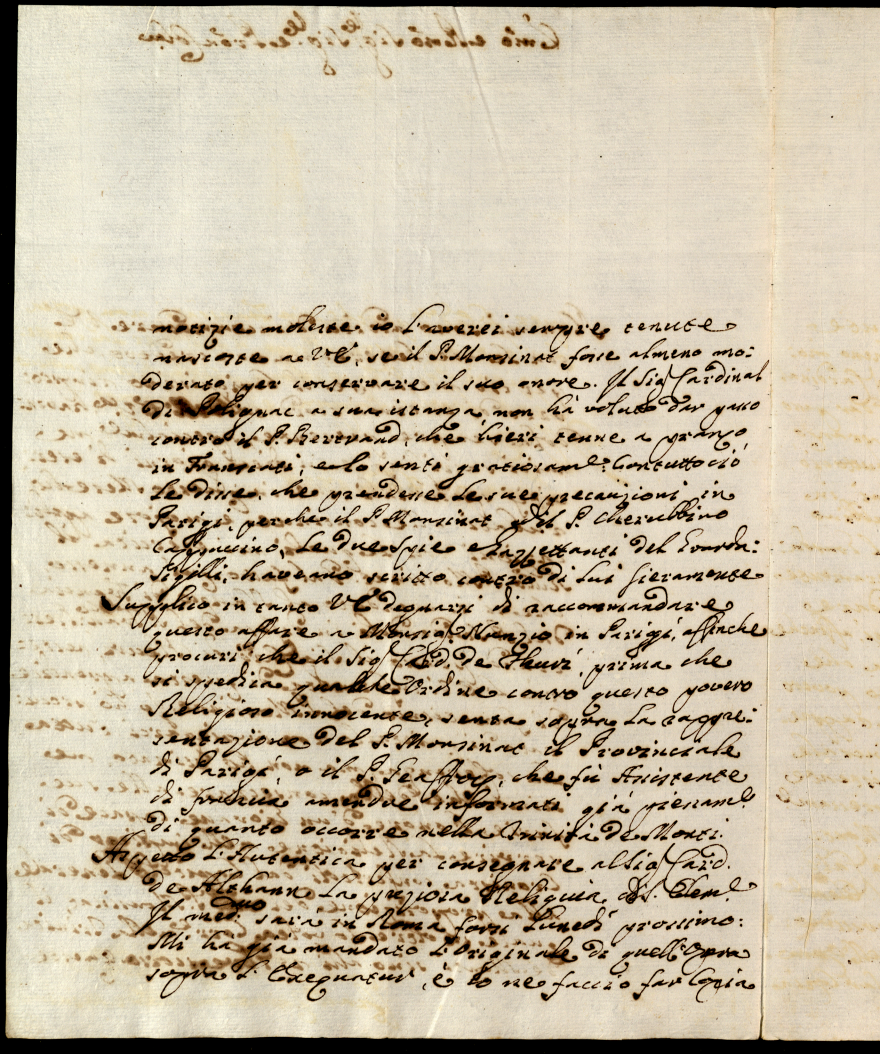 notizie moleste io l'averei sempre tenute
nascoste a VE, se il P. Monsinat fosse almeno mo:
derato per conservare il suo onore. Il Sig.r Cardinal
di Polignac a sua istanza non hà voluto dar passo
contro il P. Bertrand, che hieri tenne a pranzo
in Frascati, e lo sentì gratiosam.e: Contuttociò
Le disse, che prendesse le sue precauzioni in
Parigi, perche il P. Monsinat, ed il P. Cherubbino
Cappuccino, le due spie e gazzettanti del Guarda:
Sigilli, haveano scritto contro di lui fieramente
Supplico in tanto VE degnarsi di raccommandare
questo affare a Monsig.r Nunzio in Parigi, affinche
procuri che il Sig.r Card. de Fleurì, prima che
si spedisca qualche Ordine contro questo povero
Religioso innocente, senta sopra la rappre:
sentazione del P. Monsinat il Provinciale
di Parigi, o il P. che fù Assistente
di Francia amendue informati già pienam.e
di quanto occorre nella Trinità de Monti.
Aspetto l'Autentica per consegnare al Sig.r Card.
de Althann la preziosa Reliquia di S. Clem.e
Il med.mo sarà in Roma forsi Lunedì prossimo:
Mi hà già mandato l'Originale di quell'Opera
sopra l'Exequatur, è io ne faccio far Copia